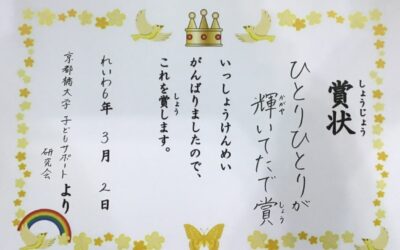 賞状
しょうじょう
ひとりひとりが
輝いてたで賞
かがや
しょう
いっしょうけんめい
がんばりましたので、
これを賞します。
しょう
れいわ6年 3月 2日
京都橘大学 子どもサポート
研究会
より